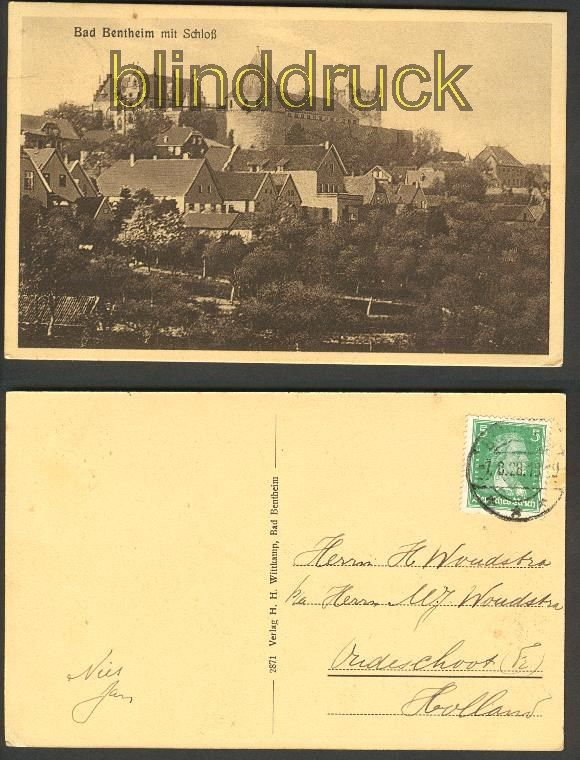 Bad Bentheim mit Schloß
blinddruck
5 5
-7.8.28.
Deutsches Reich
2871 Verlag H. H. Wittkamp, Bad Bentheim
Herrn H Woudstra
p/a Herrn MJ Woudstra
Oudeschoot (Fr)
Holland